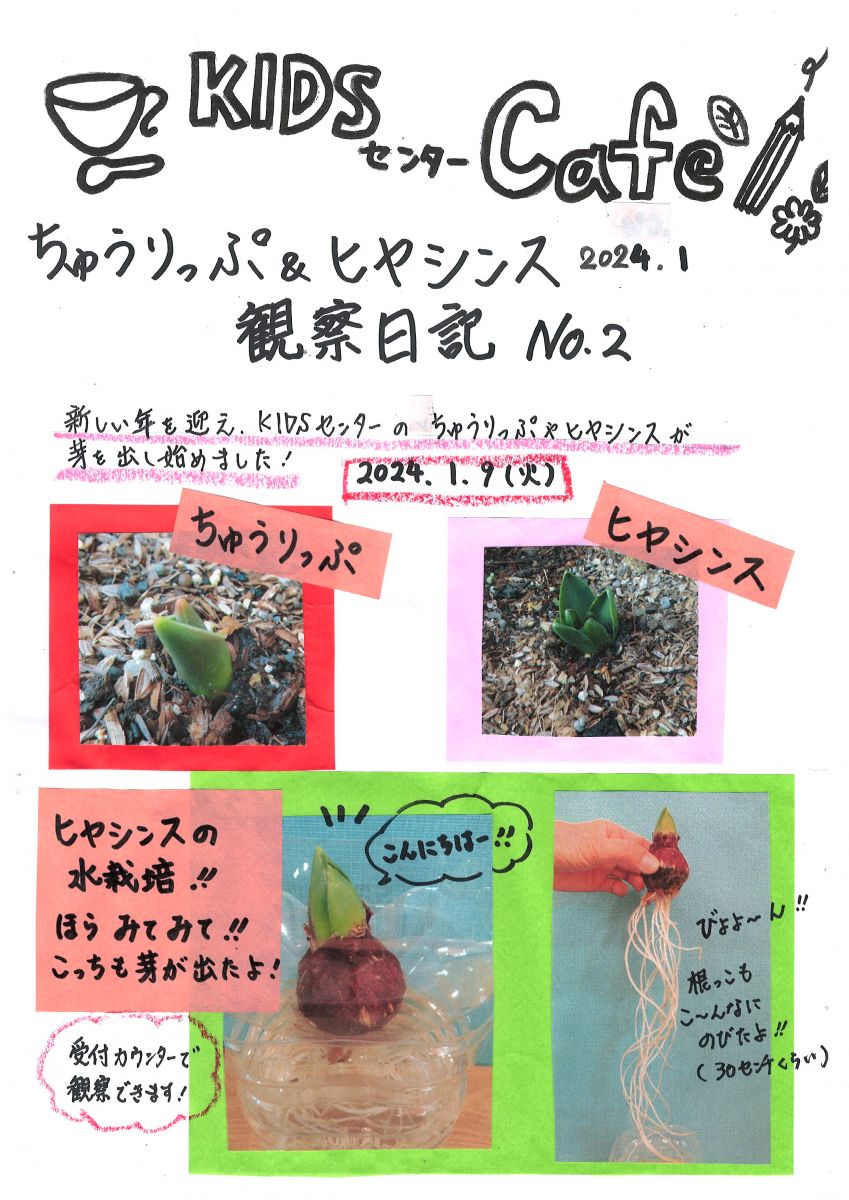 KIDS
センター Cafe
ちゅうりっぷ & ヒヤシンス 2024.1
観察日記 No.2
新しい年を迎え、KIDSセンターの ちゅうりっぷやヒヤシンスが
芽を出し始めました!
2024.1.9(火)
ちゅうりっぷ
ヒヤシンス
ヒヤシンスの
水栽培!!
ほら みてみて!!
こっちも芽が出たよ!
こんにちはー!!
受付カウンターで
観察できます!
びよよ〜ん!!
根っこも
こ〜んなに
のびたよ!!
(30センチくらい)